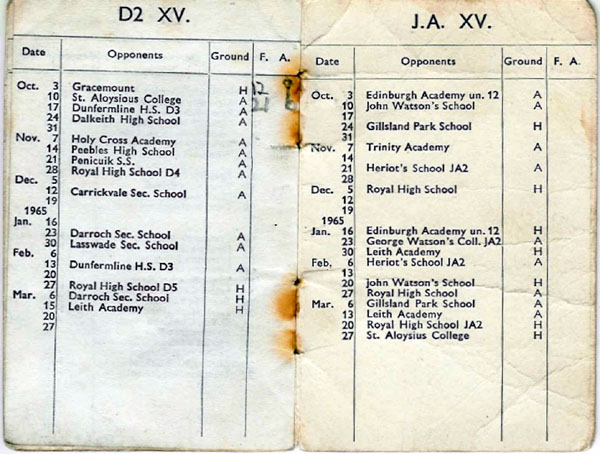 D2 XV.
Date Opponents Ground F. A.
Oct. 3 Gracemount H 12 9
10 St. Aloysious College A 21
17 Dunfermline H.S. D3 A
24 Dalkeith High School A
31
Nov. 7 Holy Cross Academy A
14 Peebles High School A
21 Penicuik S.S. A
28 Royal High School D4 A
Dec. 5
12 Carrickvale Sec. School A
19
1965
Jan. 16
23 Darroch Sec. School A
30 Lasswade Sec. School
Feb. 6
13 Dunfermline H.S. D3 A
20
27 Royal High School D5 H
Mar. 6 Darroch Sec. School H
15 Leith Academy H
20
27
J.A. XV.
Date Opponents Ground F. A.
Oct. 3 Edinburgh Academy un. 12 A
10 John Watson's School A
17
24 Gillsland Park School H
31
Nov. 7 Trinity Academy A
14
21 Heriot's School JA2 A
28
Dec. 5 Royal High School H
12
19
1965
Jan. 16 Edinburgh Academy un. 12 H
23 George Watson's Coll. JA2 A
30 Leith Academy H
Feb. 6 Heriot's School JA2 A
13
20 john Watson's School H
27 Royal High School A
Mar. 6 Gillsland Park School A
13 Leith Academy A
20 Royal High School JA2 H
27 St. Aloysius College H